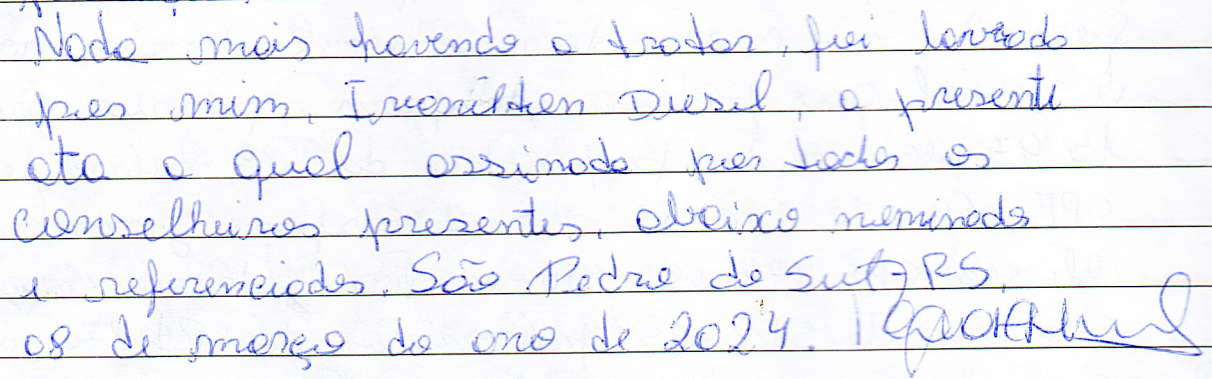 Nada mais havendo a tratar, foi lavrado
por mim, Ironilton Diesel, a presente
ata a qual assinada por todos os
conselheiros presentes, abaixo nominados
e referenciados. São Pedro do Sul-RS,
08 de março do ano de 2024.